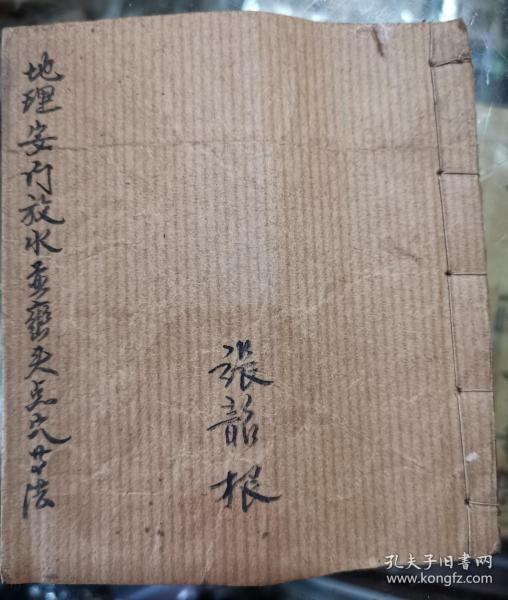 地理安门放水並巒头点穴廿法
張韶根
孔夫子旧书网
www.kongfz.com